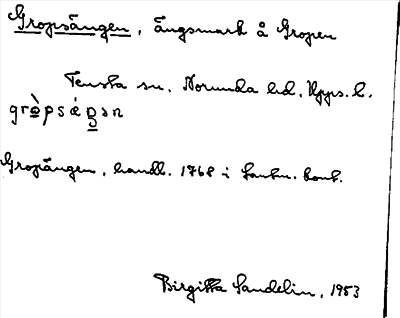 Gropsängen, ängsmark å Gropen
Tensta sn. Norunda hd. Upps. l.
grø̀psǽŋən
Gropängen, handl. 1768 i Lantm. kont.
Birgitta Sandelin, 1953